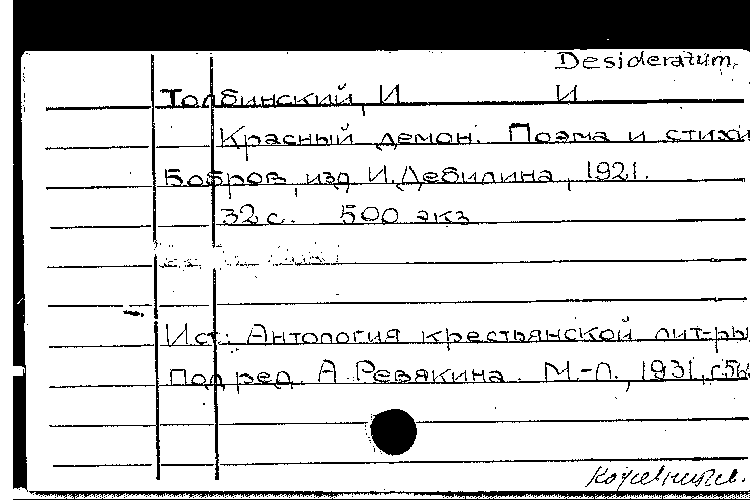 Desideratum.
Толбинский, И. И
Красный демон. Поэма и стихи
Бобров, изд И. Дебилина, 1921.
32 с. 500 экз
Ист: Антология крестьянской лит-ры
Под ред. А Ревякина. М.-Л., 1931,